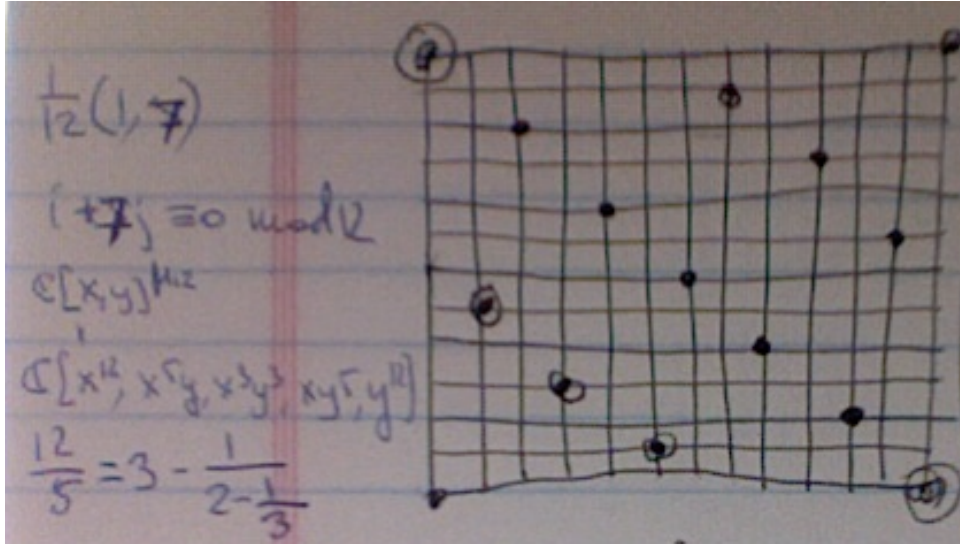 1/12 (1, 7)
i + 7j ≡ 0 mod 12
ℂ[x,y]^μ12
ℂ[x^12, x^5y, x^3y^3, xy^5, y^12]
12/5 = 3 - 1/(2 - 1/3)